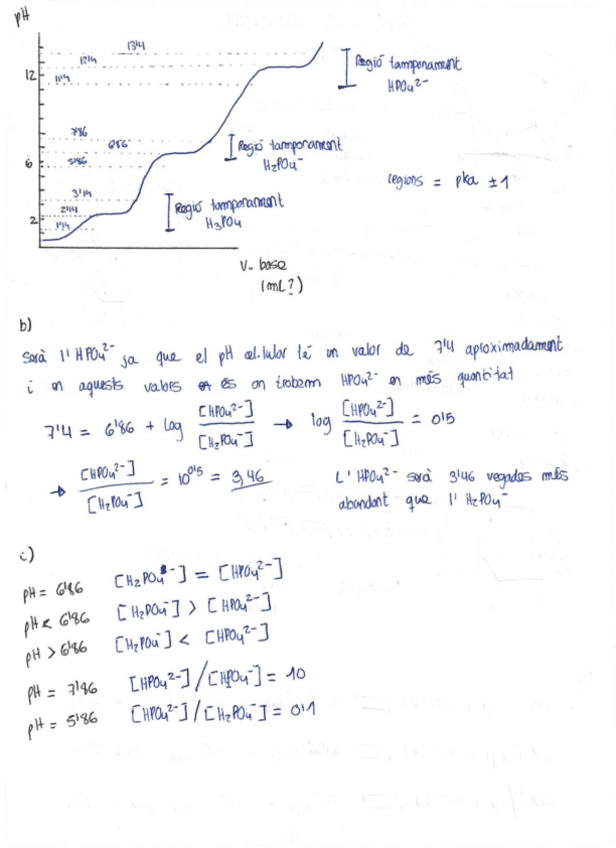 pH
13'4
12'4
12
11'4
Regió tamponament
HPO₄²⁻
7'86
6'86
6
5'86
Regió tamponament
H₂PO₄⁻
regions = pka ±1
3'14
2'14
2
1'14
Regió tamponament
H₃PO₄
V. base
(mL?)
b)
Serà l'HPO₄²⁻ ja que el pH cel·lular té un valor de 7'4 aproximadament
i en aquests valors és on trobem HPO₄²⁻ en més quantitat
7'4 = 6'86 + log [HPO₄²⁻] / [H₂PO₄⁻] → log [HPO₄²⁻] / [H₂PO₄⁻] = 0'5
→ [HPO₄²⁻] / [H₂PO₄⁻] = 10^0'5 = 3,46
L'HPO₄²⁻ serà 3'46 vegades més
abundant que l'H₂PO₄⁻
c)
pH = 6'86 [H₂PO₄⁻] = [HPO₄²⁻]
pH < 6'86 [H₂PO₄⁻] > [HPO₄²⁻]
pH > 6'86 [H₂PO₄⁻] < [HPO₄²⁻]
pH = 7'86 [HPO₄²⁻] / [H₂PO₄⁻] = 10
pH = 5'86 [HPO₄²⁻] / [H₂PO₄⁻] = 0'1